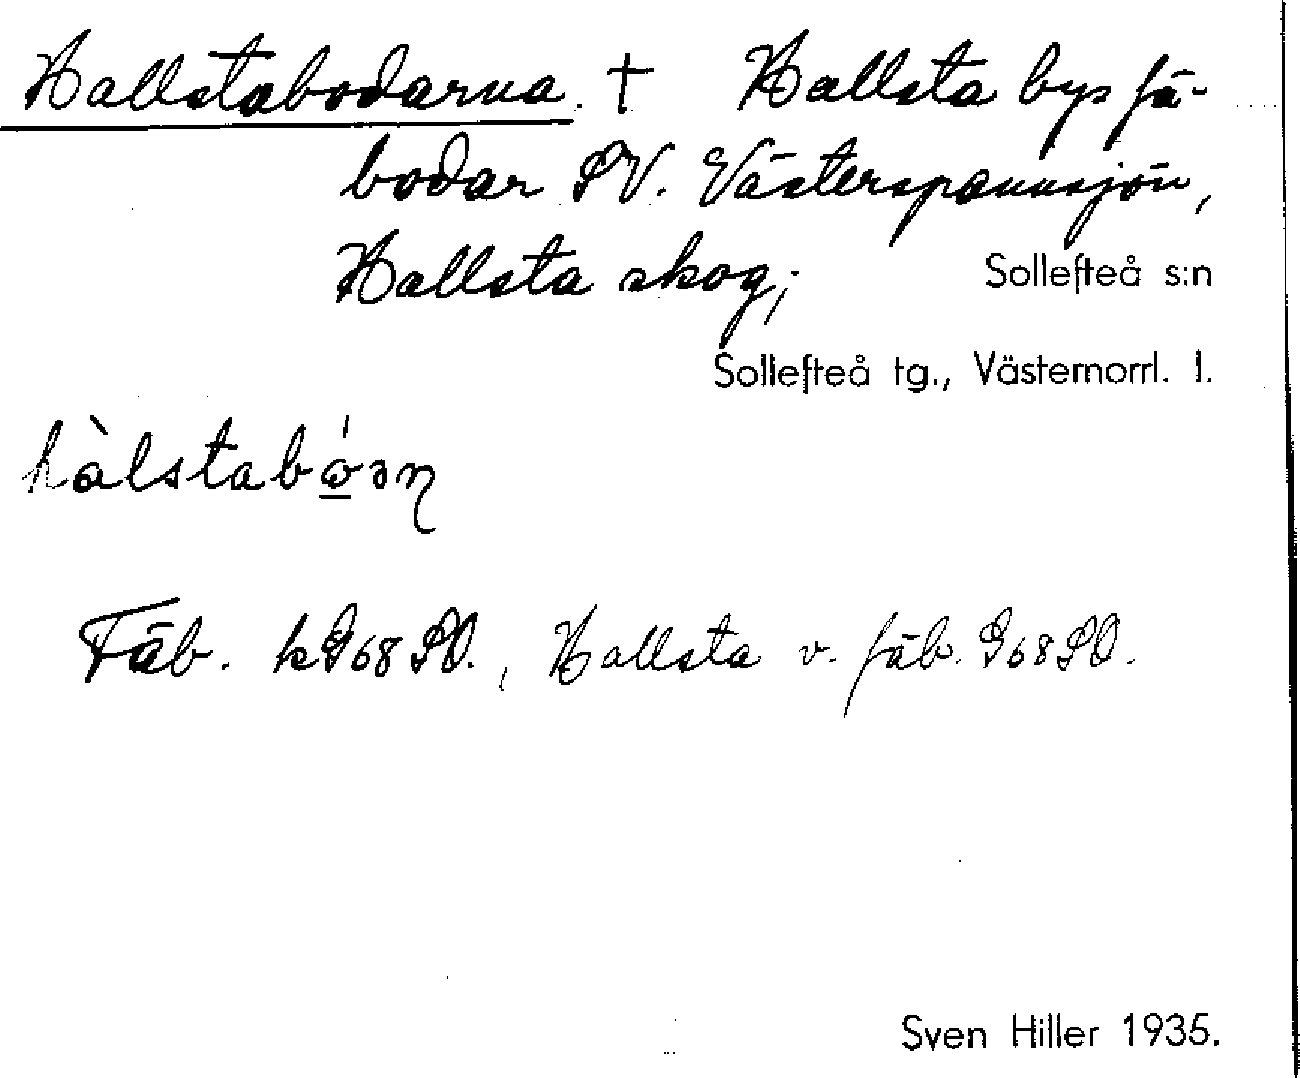 Hallstabodarna. † Hallsta bys fä-
bodar SV. Västerspannsjön,
Hallsta skog; Sollefteå s:n
Sollefteå tg., Västernorrl. l.
hàlstabó̱ən
Fäb. kG68SO., Hallsta v. fäb. G68SO.
Sven Hiller 1935.